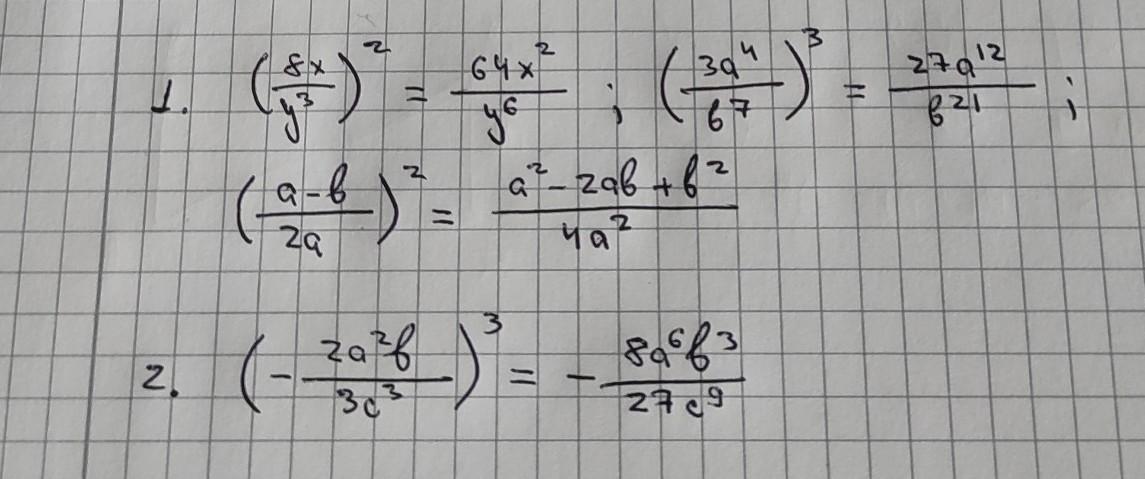 1. (8x/y³)² = 64x²/y⁶ ; (3a⁴/b⁷)³ = 27a¹²/b²¹ ;
((a-b)/2a)² = (a²-2ab+b²)/4a²
2. (-2a²b/3c³)³ = -8a⁶b³/27c⁹